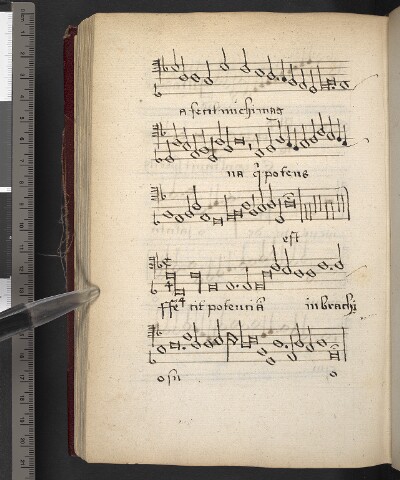 a fecit michi mag
na q̃ potens
est
ffẽ tit potenciã in brachi
o su o